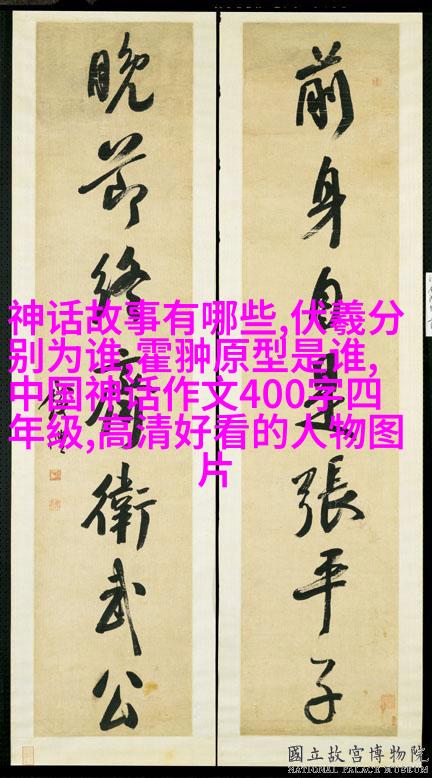 前身自是張平子
晚節終齊衛武公
神话故事有哪些,伏羲分
别为谁,霍翀原型是谁,
中国神话作文400字四
年级,高清好看的人物图
片
國立故宮博物院
NATIONAL PALACE MUSEUM